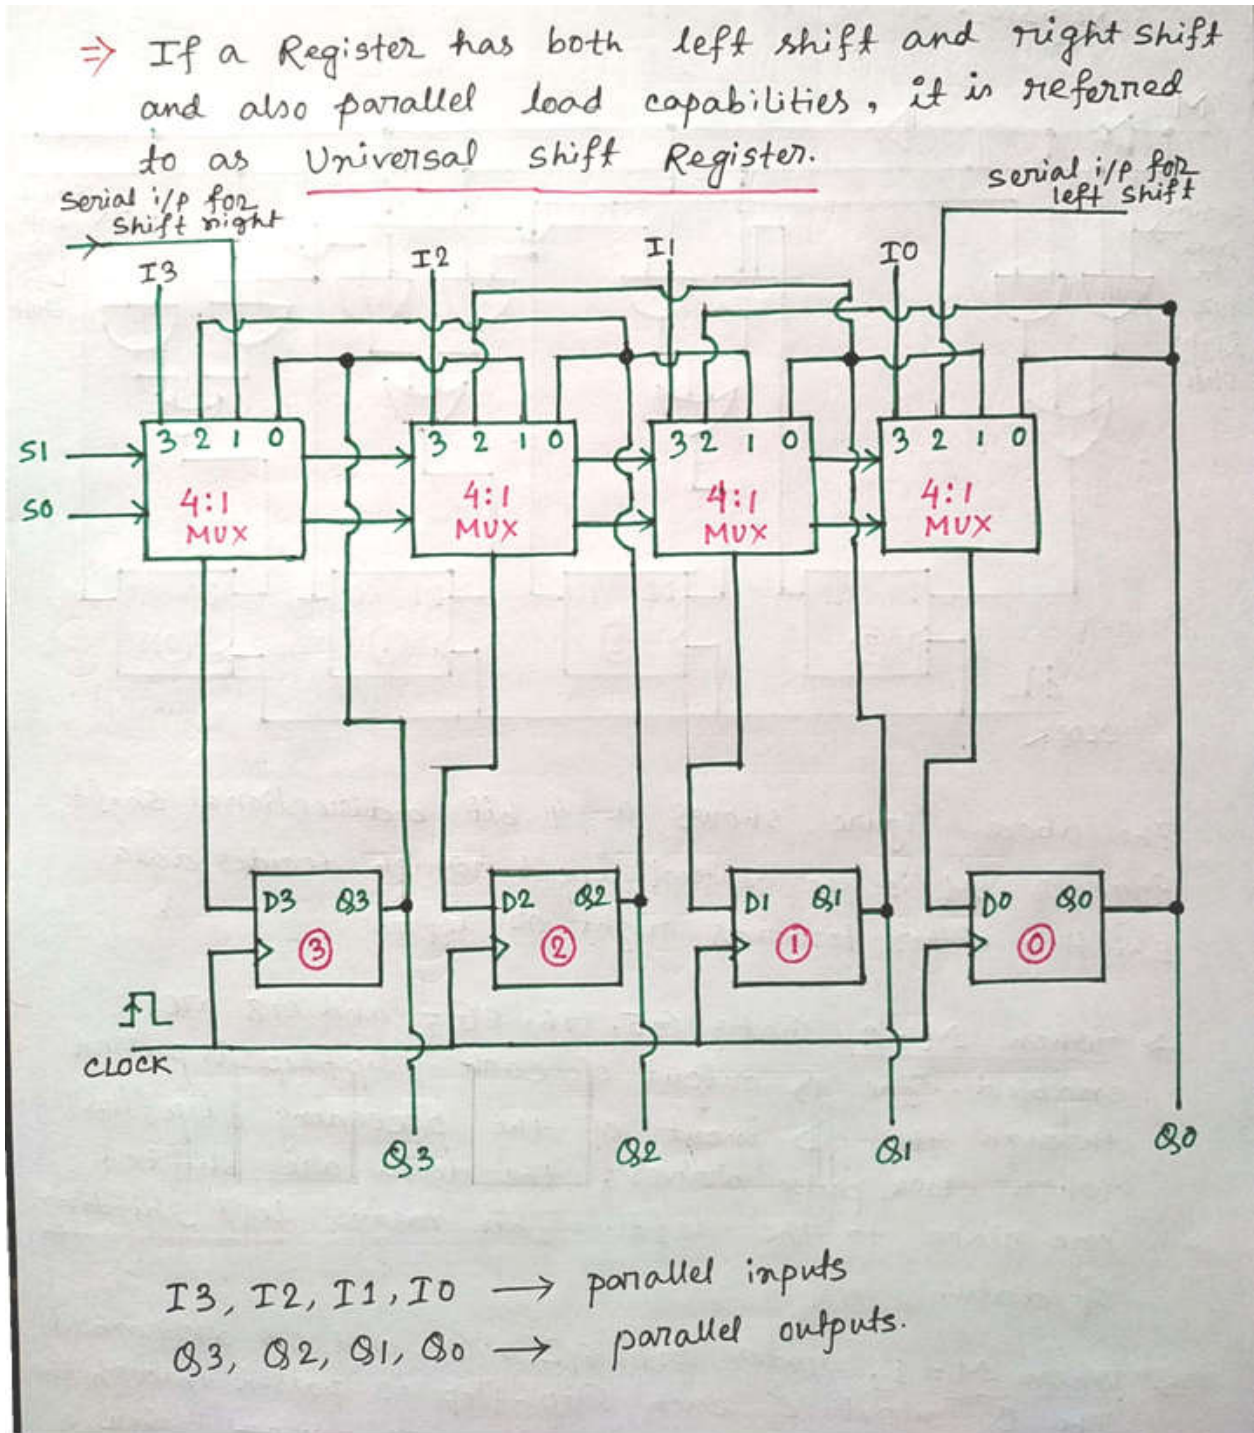 ⇒ If a Register has both left shift and right shift
and also parallel load capabilities, it is referred
to as Universal Shift Register.
serial i/p for
shift right
serial i/p for
left shift
I3
I2
I1
I0
3 2 1 0
3 2 1 0
3 2 1 0
3 2 1 0
S1
S0
4:1
MUX
4:1
MUX
4:1
MUX
4:1
MUX
D3 Q3
3
D2 Q2
2
D1 Q1
1
D0 Q0
0
CLOCK
Q3
Q2
Q1
Q0
I3, I2, I1, I0 → parallel inputs
Q3, Q2, Q1, Q0 → parallel outputs.